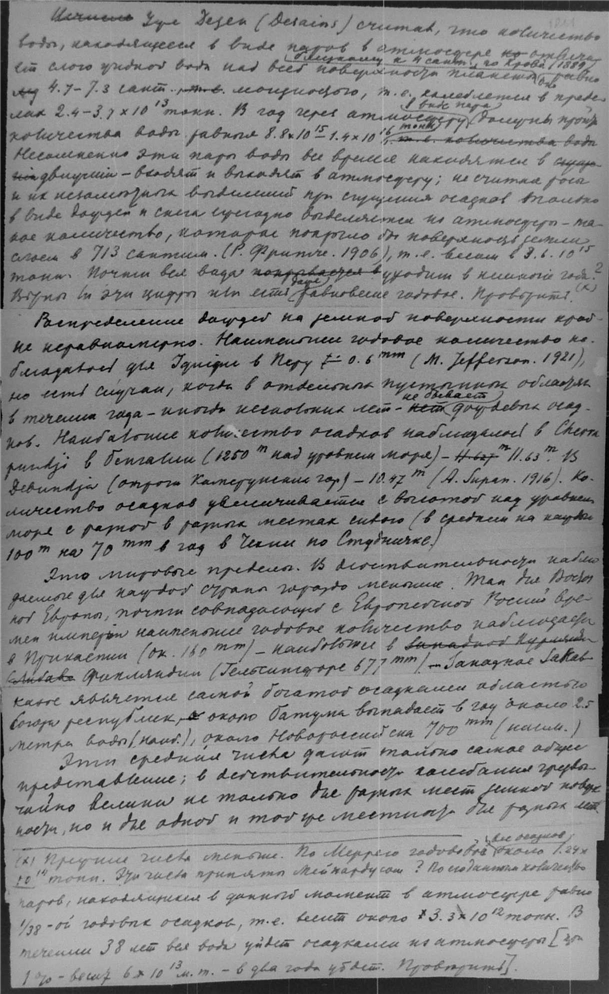 Жюль Дезен (Desains) считал, что количество
воды, находящееся в виде паров в атмосфере отвеча-
ет слою жидкой воды над всей поверхности планеты, равно
4.7-7.3 сант. мощностью, т.е. колеблется в преде-
лах 2.4-3.7 × 10¹³ тонн. В год через атмосферу в виде пара должны пройти
количества воды равныя 8.8×10¹⁵-1.4×10¹⁶ тонн
Несомненно эти пары воды все время находятся в
движении - входят и выходят в атмосферу; не считая росы
и их незаметных выделений при сгущении осадков только
в виде дождей и снега ежегодно выделяется из атмосферы - та-
кое количество, которое покрыло бы поверхность земли
слоем в 713 сантим. (Г. Фритче. 1906), т.е. весом в 3.6. 10¹⁵
тонн. Почти вся вода уходит в
Верны ли эти цифры или есть равновесие годовое. Проверить. (x)
Распределение дождей на земной поверхности край-
не неравномерно. Наименьшее годовое количество на-
блюдалось для Iquique в Перу 0.6 mm (M. Jefferson. 1921),
но есть случаи, когда в отдельных пустынных областях
в течении года - иногда нескольких лет - не бывает дождевых осад-
ков. Наибольшие количество осадков наблюдалось в Cherra
pundji в Бенгалии (1250 m над уровнем моря) - 11.63 m. В
Debundja (отроги Камерунских гор) - 10.47 m (А. 1916). Ко-
личество осадков увеличивается с высотой над уровнем
моря с разной в разных местах силою (в среднем на каждые
100 m на 70 mm в год в Чехии по Студничке.)
Это мировые пределы. В действительности наблю-
даемые для каждой страны гораздо меньшие. Так для Восточ
ной Европы, почти совпадающей с Европейской Россией вре-
мен империи наименьшее годовое количество наблюдается
в Прикаспии (ок. 160 mm) - наибольшее в
Финляндии (Гельсингфорс 677 mm) - Западное Закав-
казье является самой богатой осадками областью
республик, около Батума выпадает в год около 2.5
метра воды (наиб.), около Новороссийска 700 mm (наим.)
Эти средния числа дают только самое общее
представление; в действительности колебания чрезвы-
чайно велики не только для разных мест земной поверх
ности, но и для одной и той же местности для разных лет
(x) Прежние числа меньше. По Меррею годовой вес осадков около 1.24×
10¹⁴ тонн. Эти числа приняты Мейнардусом? По количество
паров, находящихся в данный момент в атмосфере равно
1/38-ой годовых осадков, т.е. весит около 3.3×10¹² тонн. В
течении 38 лет вся вода уйдет осадками из атмосферы [при
1% - весит 6×10¹³ м.т. - в два года уйдет. Проверить].